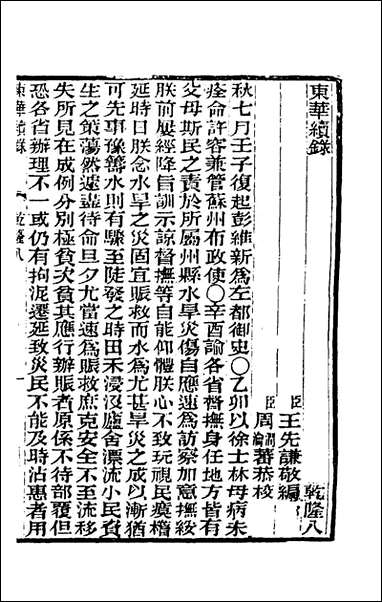 東華續錄
乾隆八
臣王先謙敬編
臣周潤蕃恭校
秋七月壬子復起彭維新爲左都御史○乙卯以徐士林母病未
痊命許容兼管蘇州布政使○辛酉諭各省督撫身任地方皆有
父母斯民之責於所屬州縣水旱災傷自應速爲訪察加意撫綏
朕前屢經降旨訓示諒督撫等自能仰體朕心不致玩視民瘼稽
延時日朕念水旱之災固宜賑救而水爲尤甚旱災之成以漸猶
可先事豫籌水則有驟至陡發之時田禾浸沒廬舍漂流小民資
生之策蕩然速盡待命旦夕尤當速爲賑救庶克安全不至流移
失所見在成例分別極貧次貧其應行辦賑者原係不待部覆但
恐各省辦理不一或仍有拘泥遷延致災民不能及時沾惠者用
東華續錄
乾隆八
一